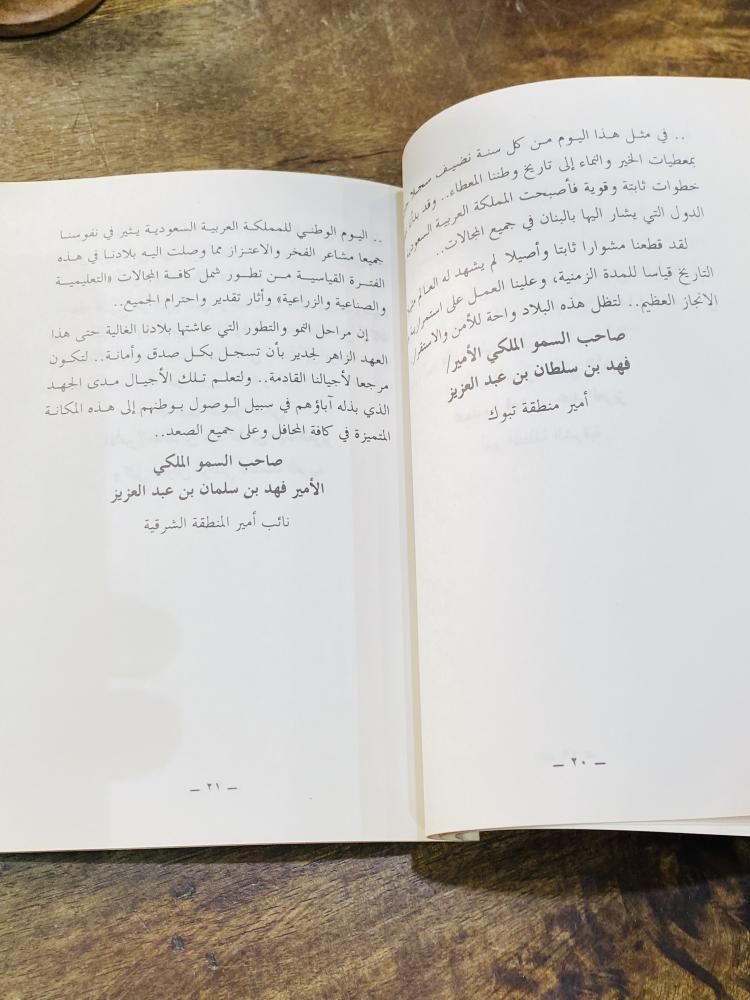 .. في مثل هذا اليوم من كل سنة نضيف
بمعطيات الخير والنماء إلى تاريخ وطننا المعطاء.. وقد
خطوات ثابتة وقوية فأصبحت المملكة العربية السعودية
الدول التي يشار اليها بالبنان في جميع المجالات..
لقد قطعنا مشوارا ثابتا وأصيلا لم يشهد له العالم
التاريخ قياسا للمدة الزمنية، وعلينا العمل على
الانجاز العظيم.. لتظل هذه البلاد واحة للأمن والاستقرار.
صاحب السمو الملكي الأمير/
فهد بن سلطان بن عبد العزيز
أمير منطقة تبوك
— ٢٠ —
.. اليوم الوطني للمملكة العربية السعودية يثير في نفوسنا
جميعا مشاعر الفخر والاعتزاز مما وصلت اليه بلادنا في هذه
الفترة القياسية من تطور شمل كافة المجالات «التعليمية
والصناعية والزراعية» وأثار تقدير واحترام الجميع..
إن مراحل النمو والتطور التي عاشتها بلادنا الغالية حتى هذا
العهد الزاهر لجدير بأن تسجل بكل صدق وأمانة.. لتكون
مرجعا لأجيالنا القادمة.. ولتعلم تلك الأجيال مدى الجهد
الذي بذله آباؤهم في سبيل الوصول بوطنهم إلى هذه المكانة
المتميزة في كافة المحافل وعلى جميع الصعد..
صاحب السمو الملكي
الأمير فهد بن سلمان بن عبد العزيز
نائب أمير المنطقة الشرقية
— ٢١ —